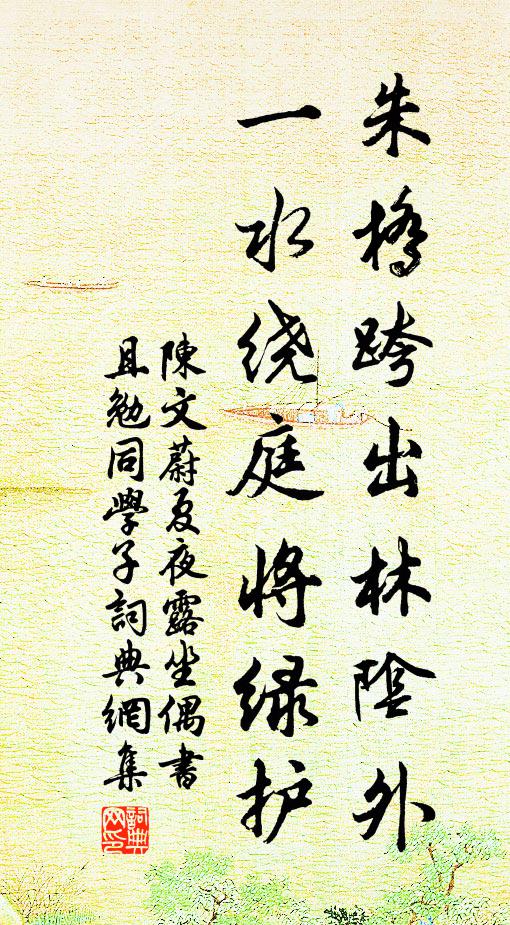 朱橋跨出林陰外
一水绕庭将绿护
陳文蔚夏夜露坐偶書
且勉同學子詞典網集
詞典网印